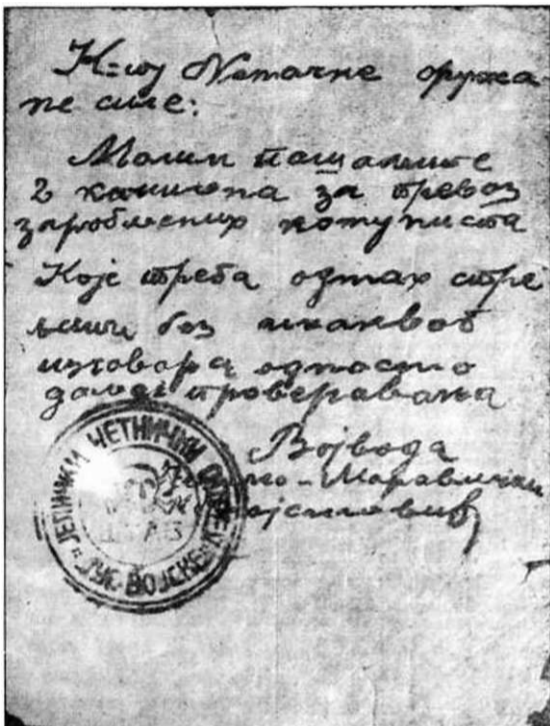 К-ној Немачке оружа
не силе:
Молим пошаљите
2 камиона за превоз
заробљених комуниста
Које треба одмах стре
љати без икаквог
изговора односно
даљег проверавања
Војвода
-Моравички
ЈЕЛИЧКИ ЧЕТНИЧКИ
ЈУГ. ВОЈСКЕ